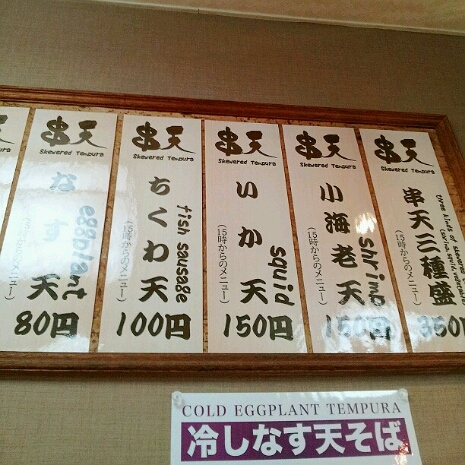 串天
Skewered Tempura
な
天
eggplant
80円
串天
Skewered Tempura
ちくわ天
fish sausage
(15時からのメニュー)
100円
串天
Skewered Tempura
いか天
squid
(15時からのメニュー)
150円
串天
Skewered Tempura
小海老天
shrimp
(15時からのメニュー)
150円
串天
Skewered Tempura
串天三種盛
three kinds of skewered
(15時からのメニュー)
350円
COLD EGGPLANT TEMPURA
冷しなす天そば